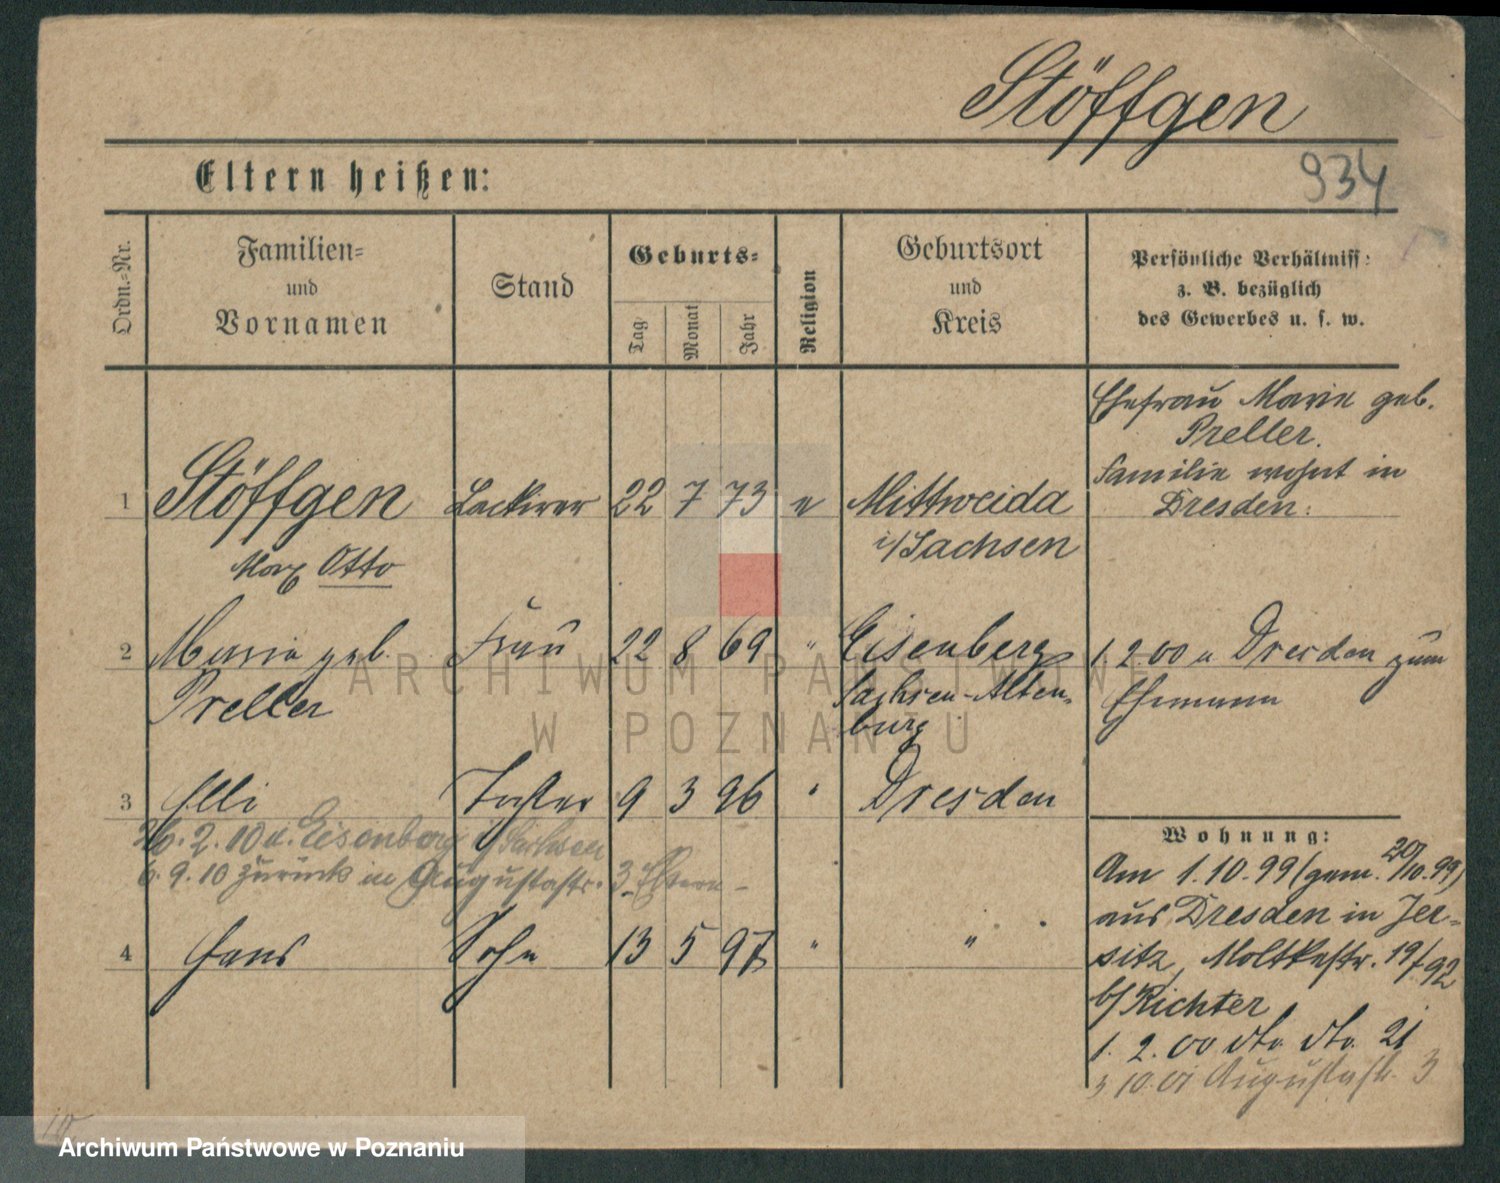 Stöffgen
934
Eltern heißen:
Ordn.-Nr.
Familien-
und
Vornamen
Stand
Geburts-
Tag
Monat
Jahr
Religion
Geburtsort
und
Kreis
Persönliche Verhältniss:
z. B. bezüglich
des Gewerbes u. s. w.
Ehefrau Marie geb.
Preller.
Familie wohnt in
Dresden.
1 Stöffgen Lackirer 22 7 73 e Mittweida
i/Sachsen
Max Otto
2 Marie geb. Frau 22 8 69 " Eisenberg 1. 2. 00 a Dresden zum
Preller Sachsen-Alten- Ehemann
burg
3 Elli Tochter 9 3 96 " Dresden
26. 2. 10 n. Eisenberg i/Sachsen
6. 9. 10 zurück in Augustastr. 3 Eltern -
4 Hans Sohn 13 5 97 " "
Wohnung:
Am 1. 10. 99 (gem. 20/10. 99)
aus Dresden in Jer-
sitz, Moltkestr. 19/92
b/Richter
1. 2. 00 dto dto. 21
3 10. 01 Augustastr. 3
ARCHIWUM PAŃSTWOWE
W POZNANIU
Archiwum Państwowe w Poznaniu